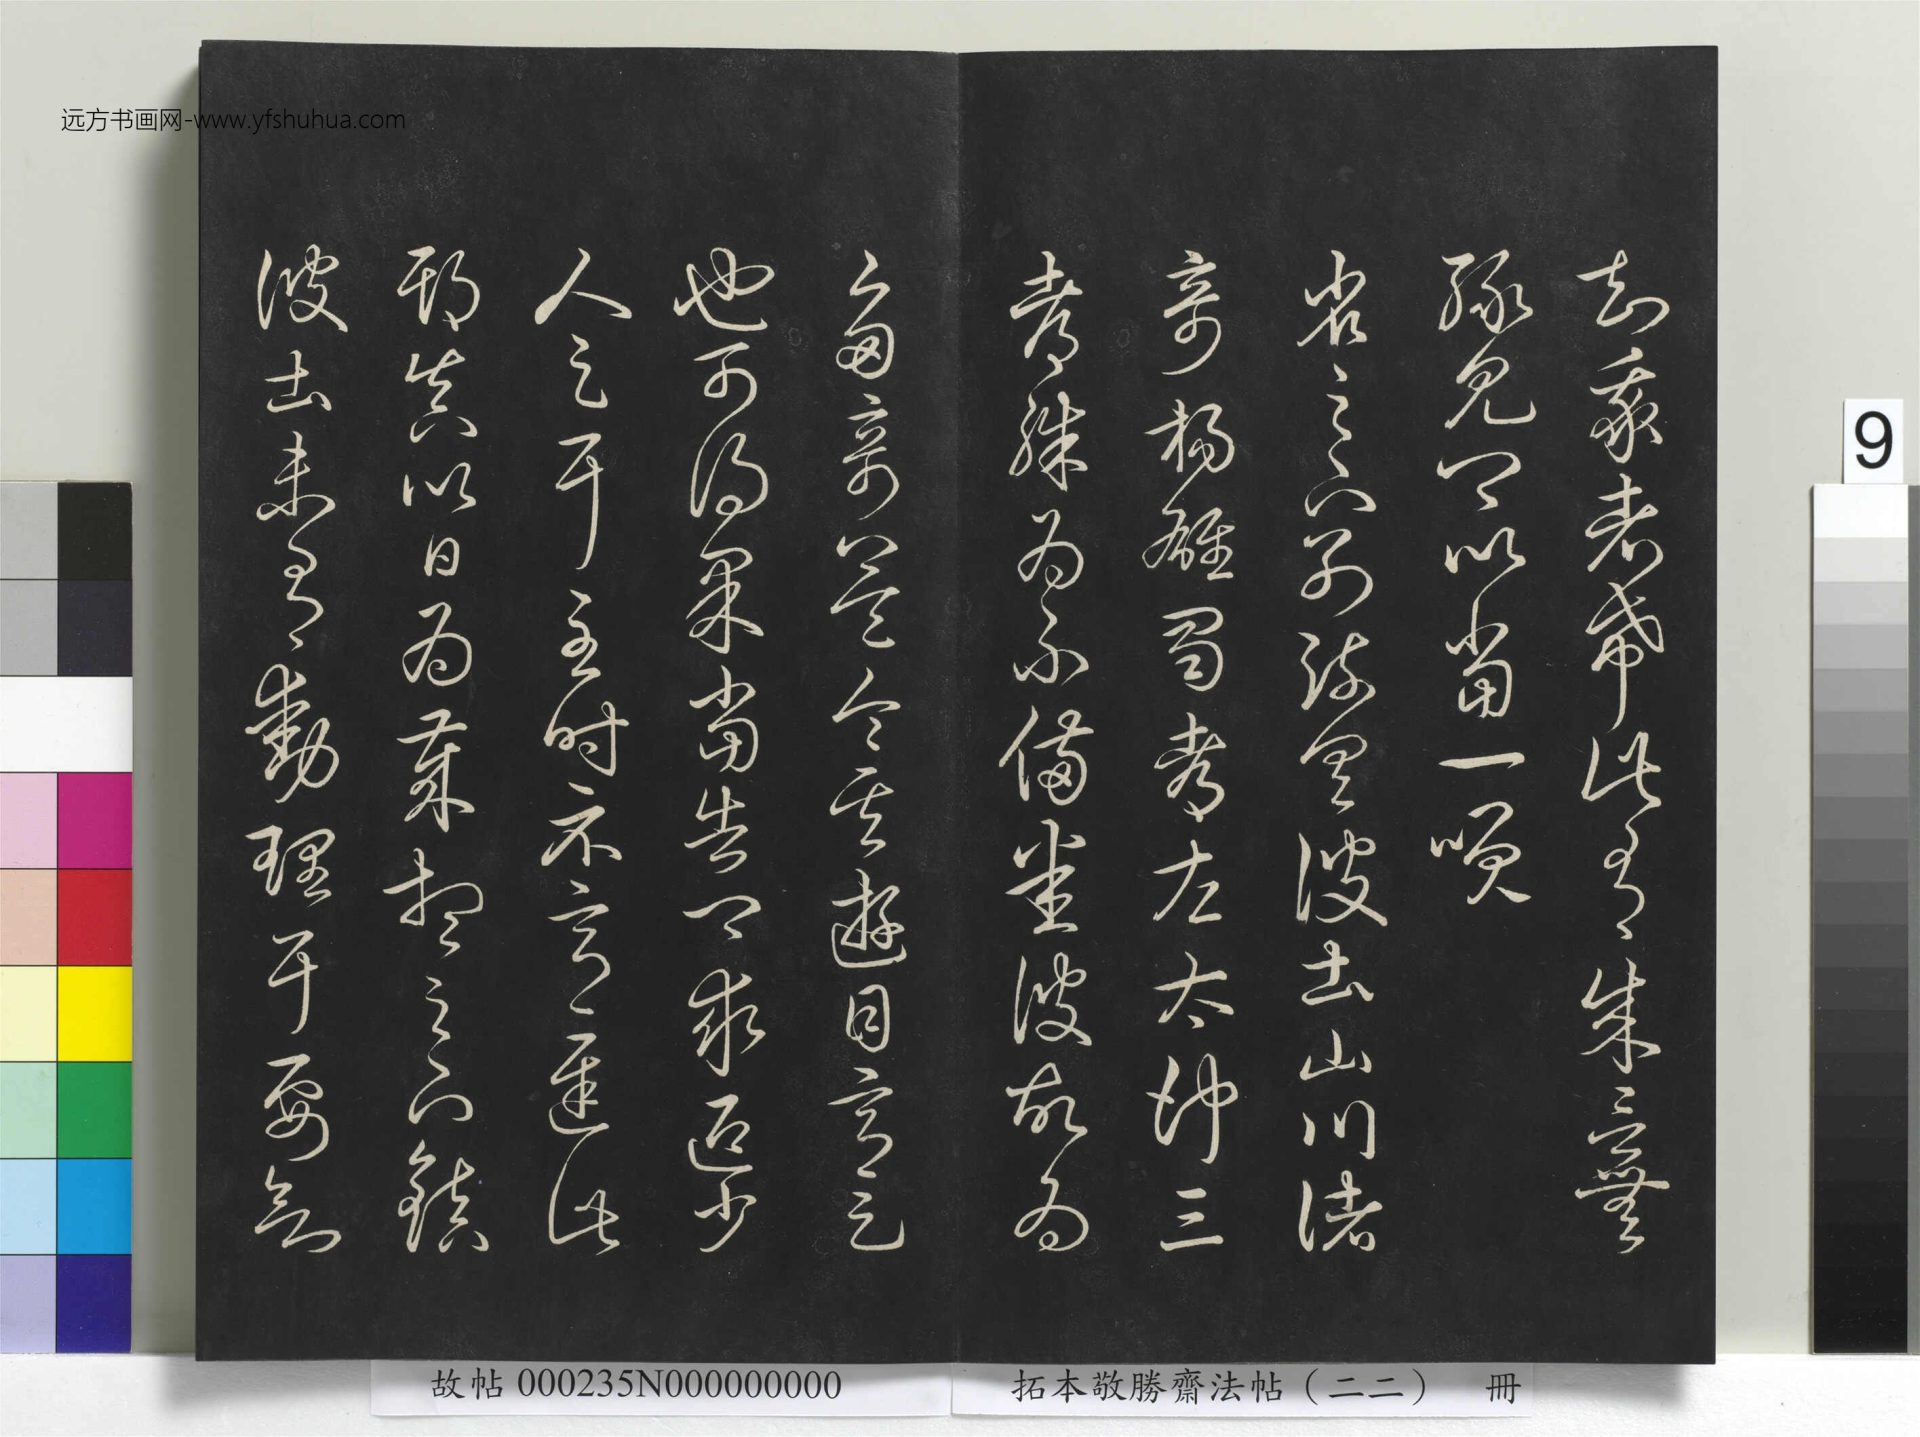 知我者希此有成言無
緣見卿以當一笑
省足下別疏具彼土山川諸
奇楊雄蜀都左太沖三
都殊為不備悉彼故為
多奇益令其遊目意足
也可得果當告卿求迎少
人足耳至時示意遲此
期真以日為歲想足下鎮
彼土未有動理耳要欲
远方书画网-www.yfshuhua.com
9
故帖 000235N000000000
拓本敬勝齋法帖（二二） 冊